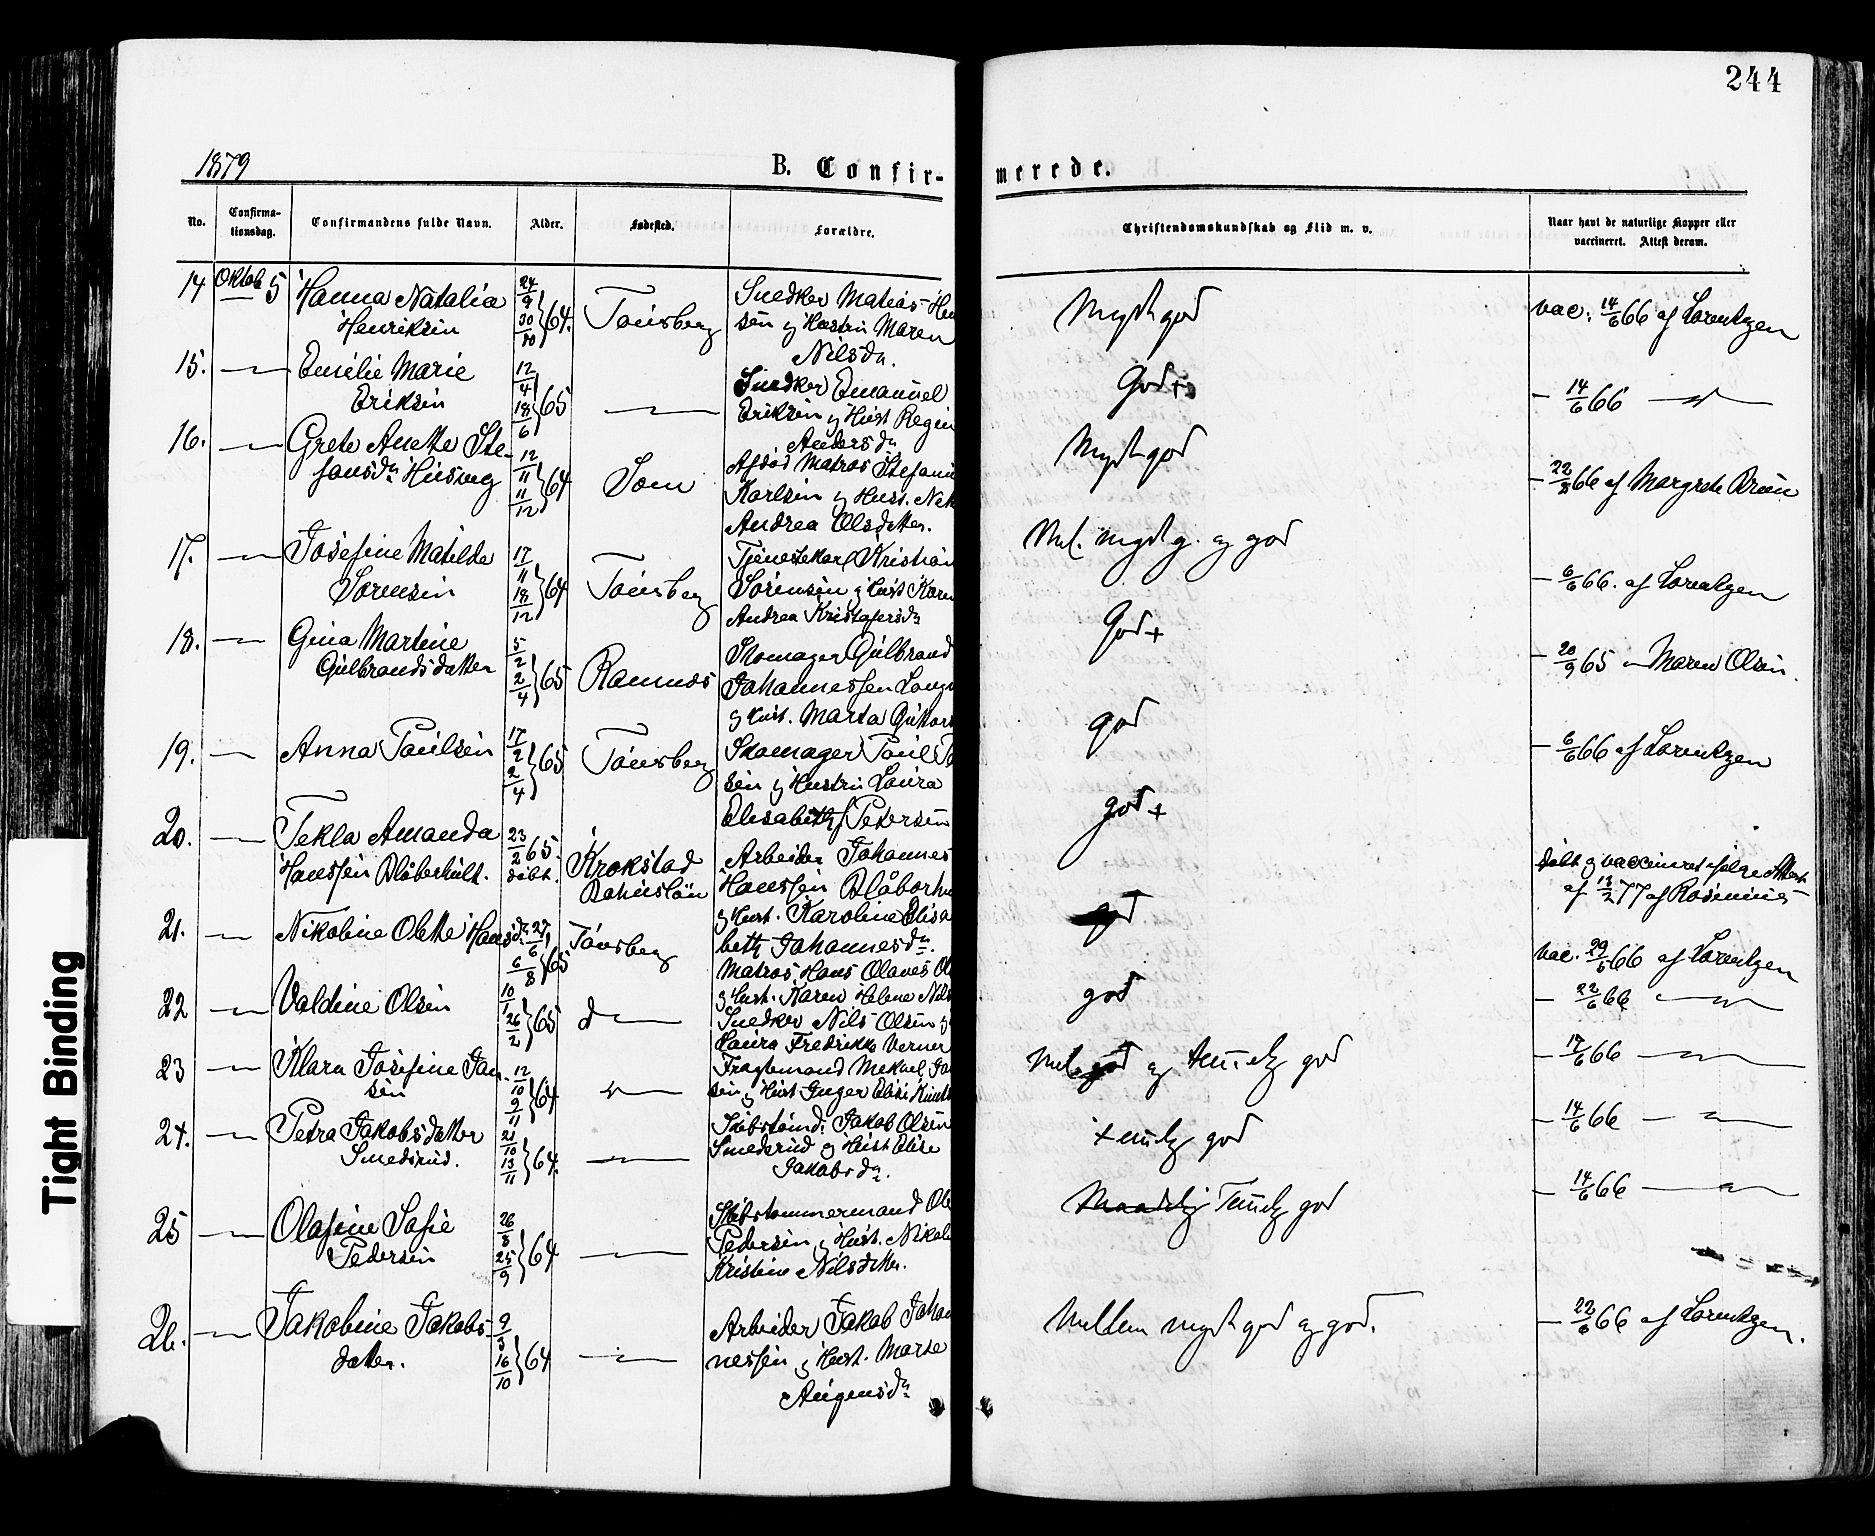 244
1879
B. Confir-
merede.
No.
Confirma-
tionsdag.
Confirmandens fulde Navn.
Alder.
Fødested.
Forældre.
Christendomskundskab og Flid m. v.
Naar havt de naturlige Kopper eller
vaccineret. Attest derom.
14 Oktob 5 Hanna Natalia 24/9 } 64. Tønsberg Snedker Matias Hen Mgdt god vac. 14/6 66 af Lorentzen
Henriksen 30/10 sen og Hustru Maren
Nilsdr.
15. — Emilie Marie 12/4 } 65 — Snedker Emanuel God+ - 14/6 66 —
Eriksen 18/6 Eriksen og Hust Regin
Andersdr
16. — Grete Anette Ste- 12/11 } 64 Sem Afdød Matros Stefanu Mgdt god - 22/8 66 af Margrete Bruun
fansdr Husveg 11/12 Karlsen og Hust. Nek
Andrea Olsdatter.
17. — Josefine Matilde 17/11 } 64 Tønsberg Tjenestekarl Kristian Mel. mgdt g. og god - 6/6 66. af Lorentzen
Sørensen 18/12 Sørensen og Hust Karen
Andrea Kristofersdr
18. — Gina Martine 5/2 } 65 Ramnes Skomager Gulbrand God+ - 20/9 65 " Maren Olsen.
Gulbrandsdatter 2/4 Johannessen
og Hust. Marta
19. — Anna Paulsen 17/2 } 65 Tønsberg Skomager Paul god - 6/6 66 af Lorentzen
2/4 sen og Hustru Laura
Elisabeth f Petersen
20. — Tekla Amanda 23/2 65. Krokstad Arbeider Johannes god+ døbt og vaccineret ifølge Attest
Hanssen Blåberhult. døbt. Bahuslän Hanssen af 12/2 77 af
og Hust. Karoline Elisa
beth Johannesdr.
21. — Nikoline Olette Hansdr. 27/6 } 65 Tønsberg Matros Hans Olaves god vac. 29/6 66 af Lorentzen
6/8 og Hust. Karen Helene Nils
22 — Valdine Olsen 10/1 } 65 d — Snedker Nils Olsen og god - 22/6 66 —
26/2 Laura Fredrikke Verner
23 — Klara Josefine Jan 12/10 } 64 — Fragtemand Mekael Ja Mel god og temelig god - 17/6 66 —
sen 9/11 sen og Hust Inger Elise Knuts
24. — Petra Jakobsdatter 21/10 } 64. — Jakob Olsen temelig god - 14/6 66 —
Smedsrud. 13/11 Smedsrud og Hust Elise
Jakobsdr.
25 — Olafine Sofie 26/8 } 64 — Skibstømmermand Ole Maadelig Temelig god - 14/6 66 —
Pedersen 25/9 Pedersen og Hust. Nikol
Kristine Nilsdatter.
26. — Jakobine Jakobs- 9/9 } 64 — Arbeider Jakob Johan Mellem mgdt god og god. - 22/6 66 af Lorentzen.
datter. 16/10 nessen og Hust. Marte
Tight Binding